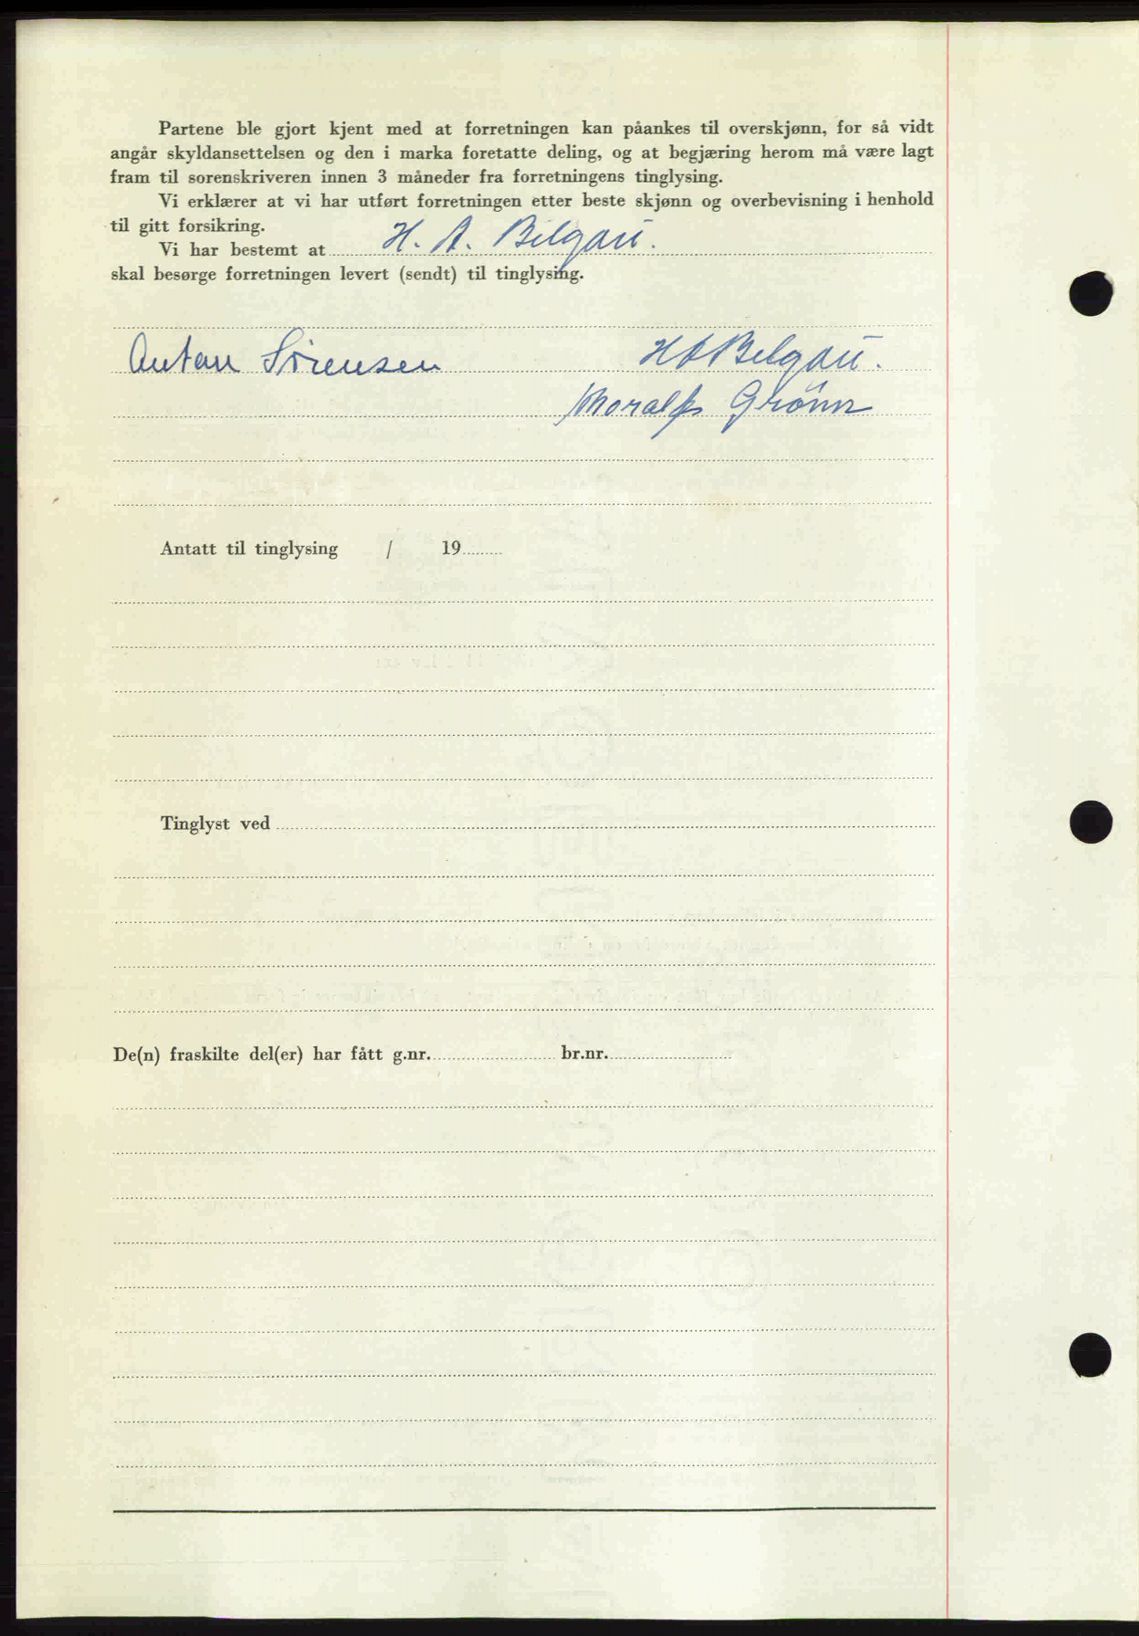 Partene ble gjort kjent med at forretningen kan påankes til overskjønn, for så vidt
angår skyldansettelsen og den i marka foretatte deling, og at begjæring herom må være lagt
fram til sorenskriveren innen 3 måneder fra forretningens tinglysing.
Vi erklærer at vi har utført forretningen etter beste skjønn og overbevisning i henhold
til gitt forsikring.
Vi har bestemt at H. A. Bilgau.
skal besørge forretningen levert (sendt) til tinglysing.
Anton Sörensen H A Belgau.
Grönn
Antatt til tinglysing / 19
Tinglyst ved
De(n) fraskilte del(er) har fått g.nr. br.nr.